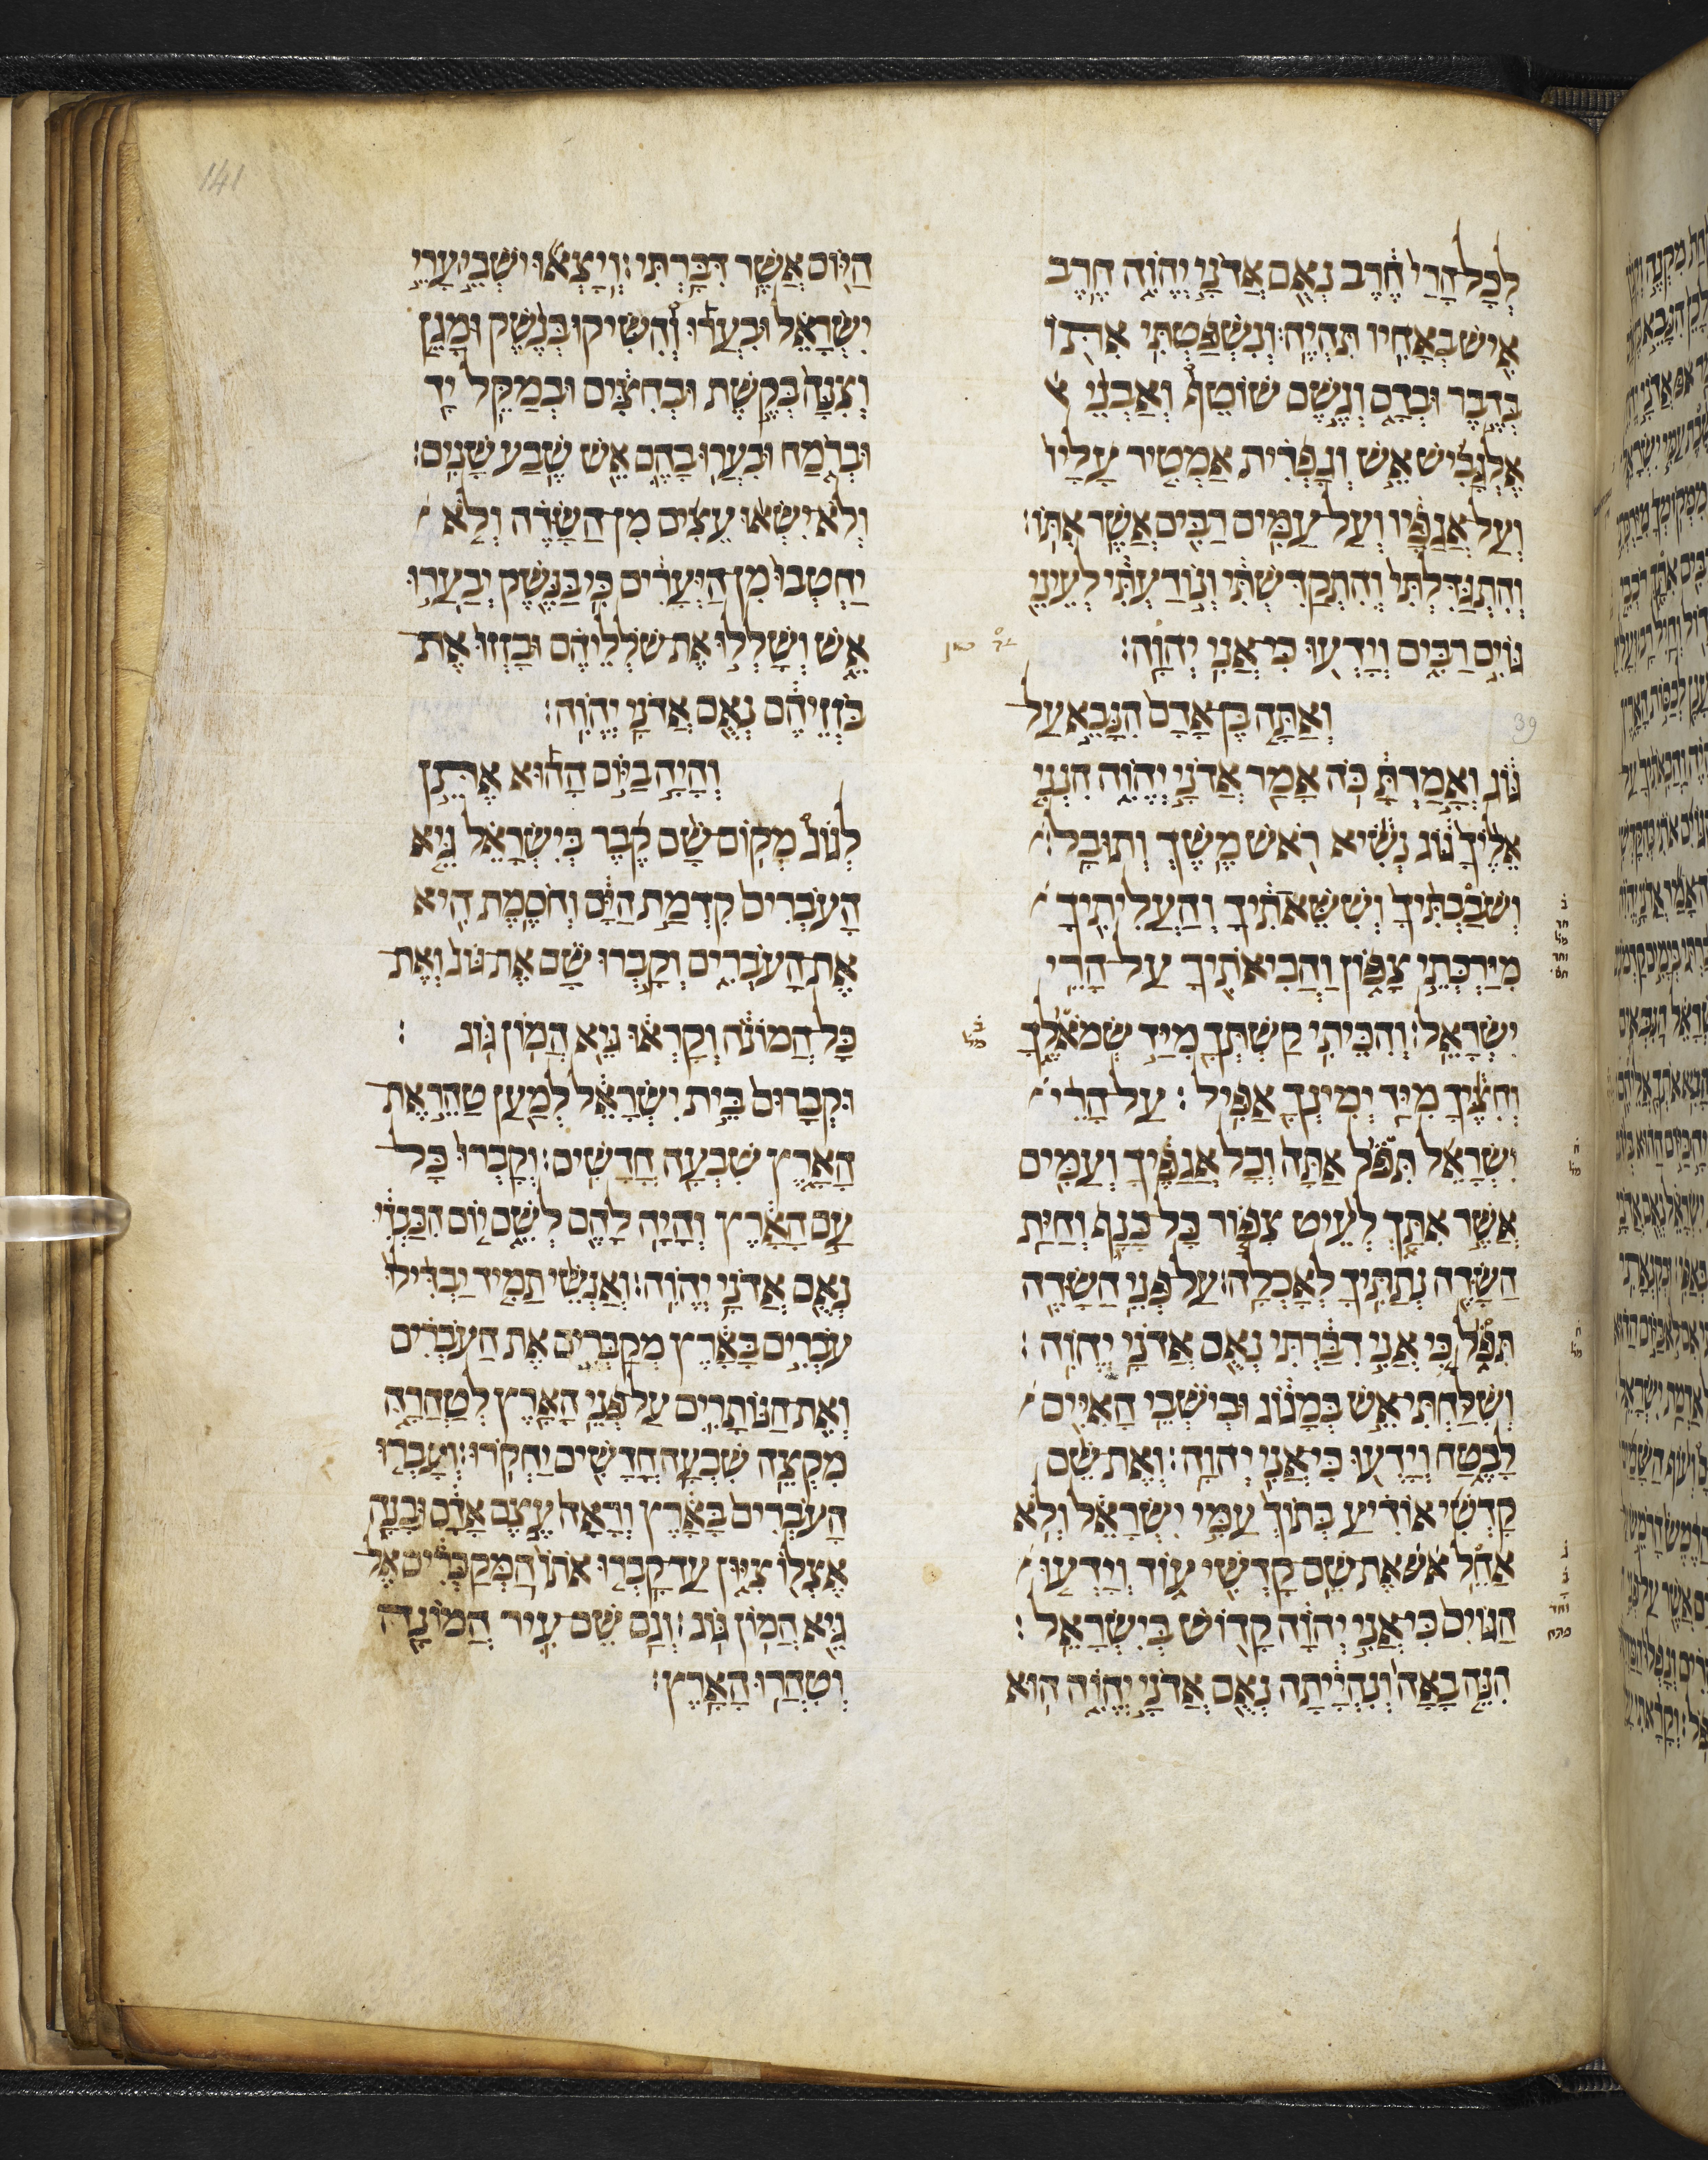 141
לְכָל הָרַי חֶרֶב נְאֻם אֲדֹנָי יְהֹוִה חֶרֶב
אִישׁ בְּאָחִיו תִּהְיֶה׃ וְנִשְׁפַּטְתִּי אִתּוֹ
בְּדֶבֶר וּבְדָם וְגֶשֶׁם שׁוֹטֵף וְאַבְנֵי
אֶלְגָּבִישׁ אֵשׁ וְגָפְרִית אַמְטִיר עָלָיו
וְעַל אֲגַפָּיו וְעַל עַמִּים רַבִּים אֲשֶׁר אִתּוֹ׃
וְהִתְגַּדִּלְתִּי וְהִתְקַדִּשְׁתִּי וְנוֹדַעְתִּי לְעֵינֵי
גּוֹיִם רַבִּים וְיָדְעוּ כִּי אֲנִי יְהוָה׃
39
וְאַתָּה בֶן אָדָם הִנָּבֵא עַל
גּוֹג וְאָמַרְתָּ כֹּה אָמַר אֲדֹנָי יְהֹוִה הִנְנִי
אֵלֶיךָ גּוֹג נְשִׂיא רֹאשׁ מֶשֶׁךְ וְתוּבָל׃
וְשֹׁבַבְתִּיךָ וְשִׁשֵּׁאתִיךָ וְהַעֲלִיתִיךָ
מִיַּרְכְּתֵי צָפוֹן וַהֲבִיאֹתִיךָ עַל הָרֵי
יִשְׂרָאֵל׃ וְהִכֵּיתִי קַשְׁתְּךָ מִיַּד שְׂמֹאלֶךָ
וְחִצֶּיךָ מִיַּד יְמִינְךָ אַפִּיל׃ עַל הָרֵי
יִשְׂרָאֵל תִּפֹּל אַתָּה וְכָל אֲגַפֶּיךָ וְעַמִּים
אֲשֶׁר אִתָּךְ לְעֵיט צִפּוֹר כָּל כָּנָף וְחַיַּת
הַשָּׂדֶה נְתַתִּיךָ לְאָכְלָה׃ עַל פְּנֵי הַשָּׂדֶה
תִּפֹּל כִּי אֲנִי דִבַּרְתִּי נְאֻם אֲדֹנָי יְהֹוִה׃
וְשִׁלַּחְתִּי אֵשׁ בְּמָגוֹג וּבְיֹשְׁבֵי הָאִיִּים
לָבֶטַח וְיָדְעוּ כִּי אֲנִי יְהוָה׃ וְאֶת שֵׁם
קָדְשִׁי אוֹדִיעַ בְּתוֹךְ עַמִּי יִשְׂרָאֵל וְלֹא
אַחֵל אֶת שֵׁם קָדְשִׁי עוֹד וְיָדְעוּ
הַגּוֹיִם כִּי אֲנִי יְהוָה קָדוֹשׁ בְּיִשְׂרָאֵל׃
הִנֵּה בָאָה וְנִהְיָתָה נְאֻם אֲדֹנָי יְהֹוִה הוּא
הַיּוֹם אֲשֶׁר דִּבַּרְתִּי׃ וְיָצְאוּ יֹשְׁבֵי עָרֵי
יִשְׂרָאֵל וּבִעֲרוּ וְהִשִּׂיקוּ בְּנֶשֶׁק וּמָגֵן
וְצִנָּה בְּקֶשֶׁת וּבְחִצִּים וּבְמַקֵּל יָד
וּבְרֹמַח וּבִעֲרוּ בָהֶם אֵשׁ שֶׁבַע שָׁנִים׃
וְלֹא יִשְׂאוּ עֵצִים מִן הַשָּׂדֶה וְלֹא
יַחְטְבוּ מִן הַיְּעָרִים כִּי בַנֶּשֶׁק יְבַעֲרוּ
אֵשׁ וְשָׁלְלוּ אֶת שֹׁלְלֵיהֶם וּבָזְזוּ אֶת
בֹּזְזֵיהֶם נְאֻם אֲדֹנָי יְהֹוִה׃
וְהָיָה בַיּוֹם הַהוּא אֶתֵּן
לְגוֹג מְקוֹם שָׁם קֶבֶר בְּיִשְׂרָאֵל גֵּיא
הָעֹבְרִים קִדְמַת הַיָּם וְחֹסֶמֶת הִיא
אֶת הָעֹבְרִים וְקָבְרוּ שָׁם אֶת גּוֹג וְאֶת
כָּל הֲמוֹנֹה וְקָרְאוּ גֵּיא הֲמוֹן גּוֹג׃
וּקְבָרוּם בֵּית יִשְׂרָאֵל לְמַעַן טַהֵר אֶת
הָאָרֶץ שִׁבְעָה חֳדָשִׁים׃ וְקָבְרוּ כָּל
עַם הָאָרֶץ וְהָיָה לָהֶם לְשֵׁם יוֹם הִכָּבְדִי
נְאֻם אֲדֹנָי יְהֹוִה׃ וְאַנְשֵׁי תָמִיד יַבְדִּילוּ
עֹבְרִים בָּאָרֶץ מְקַבְּרִים אֶת הָעֹבְרִים
וְאֶת הַנּוֹתָרִים עַל פְּנֵי הָאָרֶץ לְטַהֲרָהּ
מִקְצֵה שִׁבְעָה חֳדָשִׁים יַחְקֹרוּ׃ וְעָבְרוּ
הָעֹבְרִים בָּאָרֶץ וְרָאָה עֶצֶם אָדָם וּבָנָה
אֶצְלוֹ צִיּוּן עַד קָבְרוּ אֹתוֹ הַמְקַבְּרִים אֶל
גֵּיא הֲמוֹן גּוֹג׃ וְגַם שֶׁם עִיר הֲמוֹנָה
וְטִהֲרוּ הָאָרֶץ׃